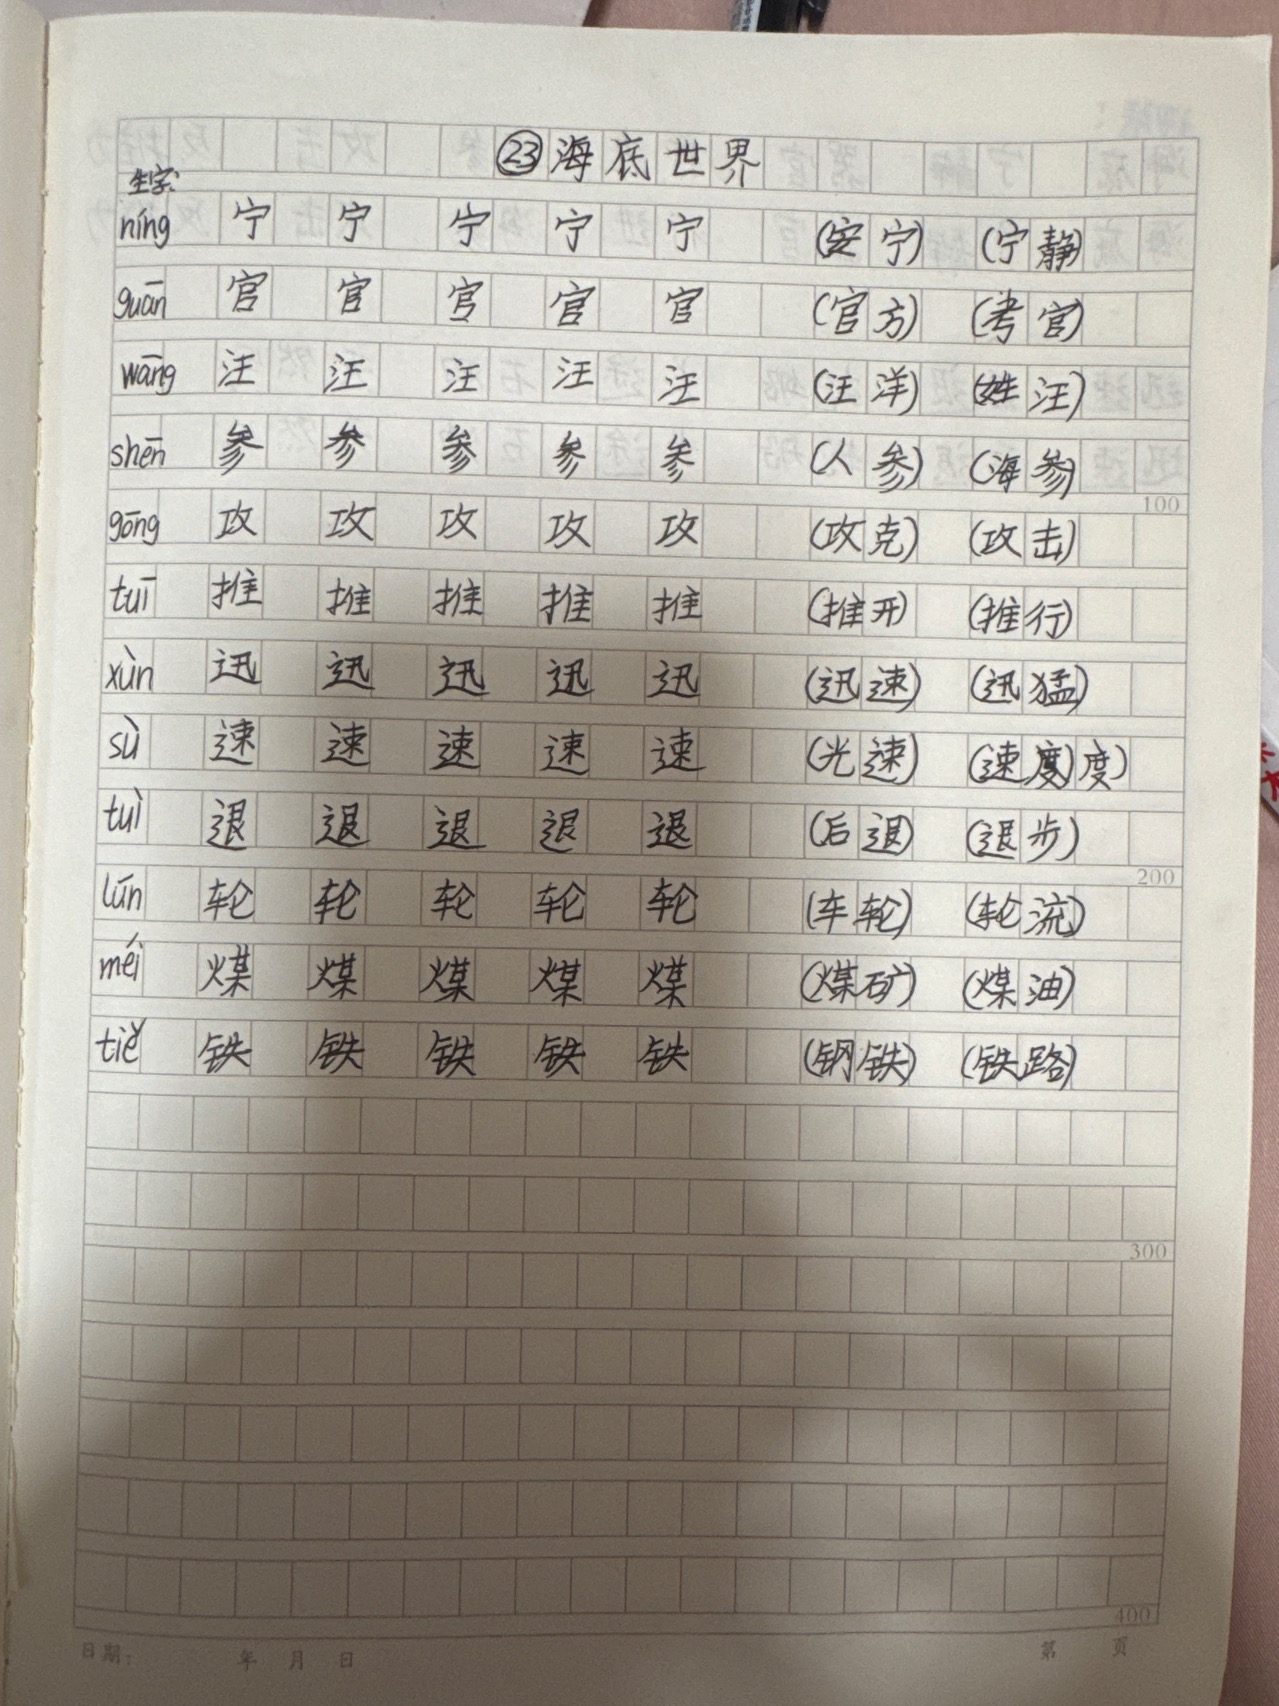 ㉓海底世界
生字:
níng 宁 宁 宁 宁 宁 (安宁) (宁静)
guān 官 官 官 官 官 (官方) (考官)
wāng 汪 汪 汪 汪 汪 (汪洋) (姓汪)
shēn 参 参 参 参 参 (人参) (海参)
gōng 攻 攻 攻 攻 攻 (攻克) (攻击)
tuī 推 推 推 推 推 (推开) (推行)
xùn 迅 迅 迅 迅 迅 (迅速) (迅猛)
100
sù 速 速 速 速 速 (光速) (速度)度)
tuì 退 退 退 退 退 (后退) (退步)
200
lún 轮 轮 轮 轮 轮 (车轮) (轮流)
méi 煤 煤 煤 煤 煤 (煤矿) (煤油)
tiě 铁 铁 铁 铁 铁 (钢铁) (铁路)
300
400
日期: 年 月 日 第 页